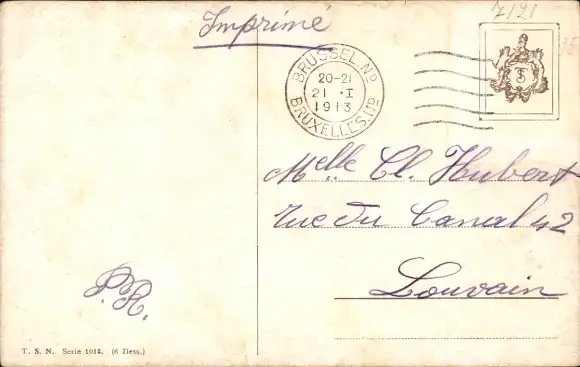 Imprimé
7/21
BRUSSEL.NO
20-21
21 ·I
1913
BRUXELLES.NO
Melle Cl. Hubert
Rue du Canal 42
Louvain
P.R.
T. S. N. Serie 1018. (6 Dess.)